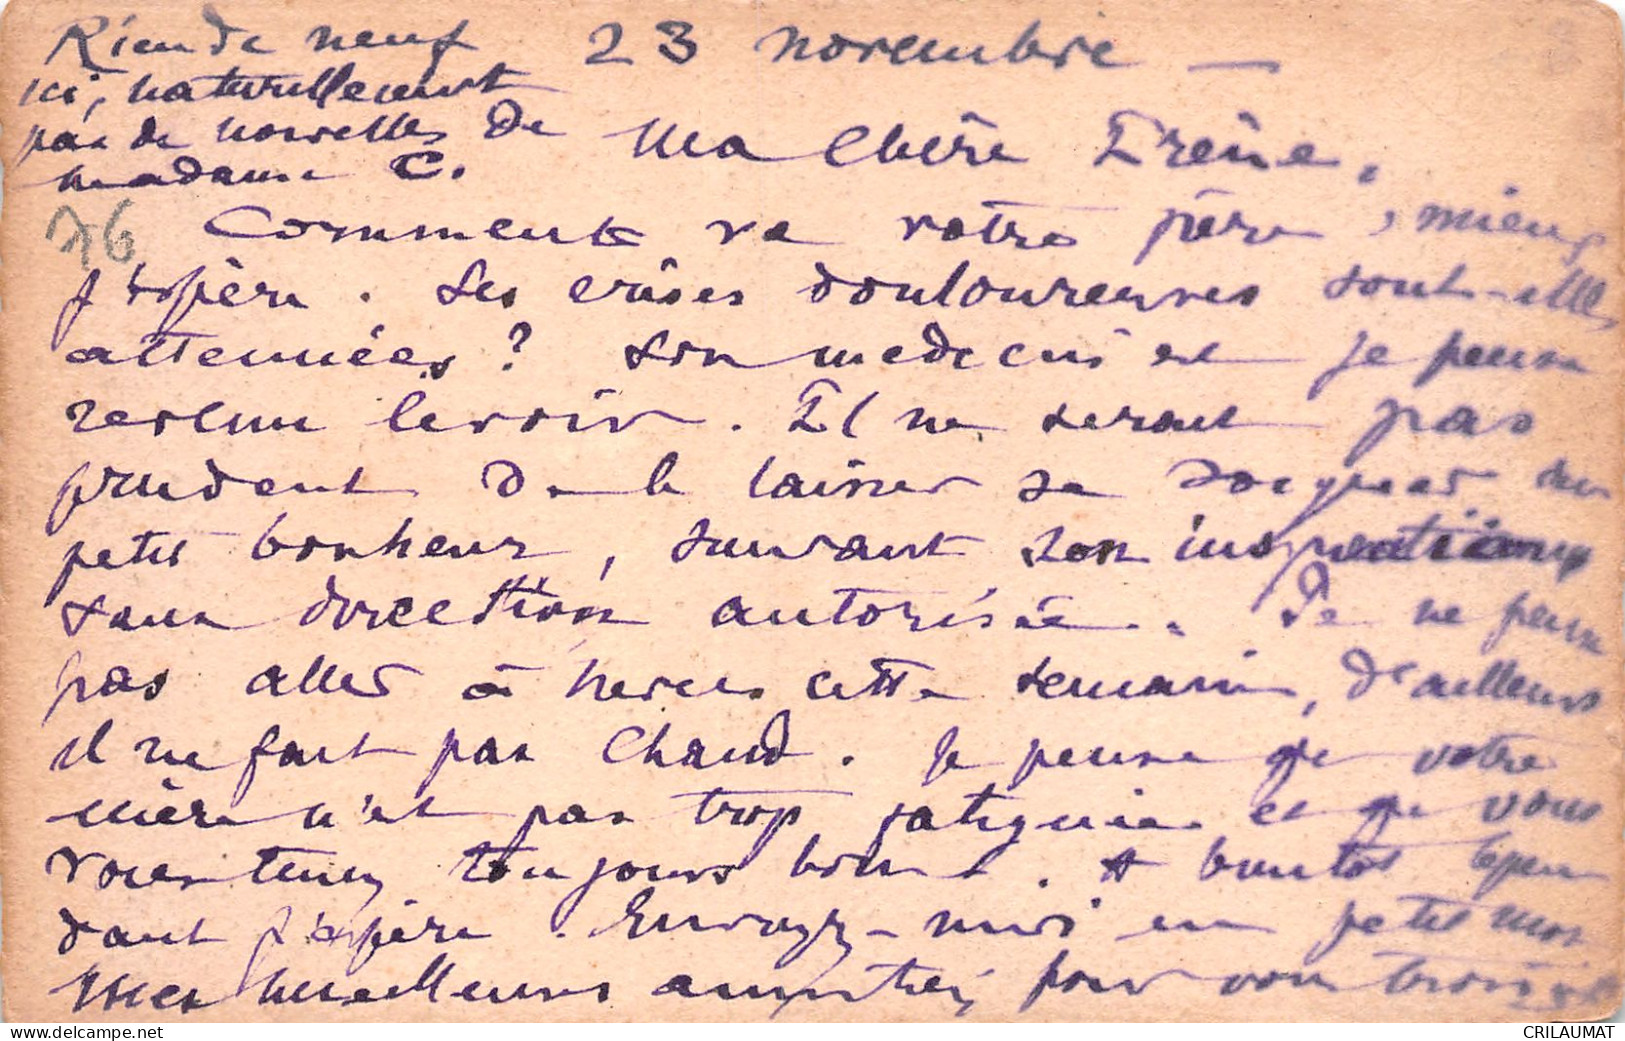 Rien de neuf
ici, naturellement
pas de nouvelles de
madame C.
23 novembre —
Ma chère Irène,
76
Comment va votre père, mieux
j'espère. Ses crises douloureuses sont-elles
attenuées ? Son medecin est je pense
revenu le voir. Il ne serait pas
prudent de le laisser se soigner au
petit bonheur, suivant son inspiration
sans direction autorisée. Je ne pense
pas aller à cette semaine, d'ailleurs
il ne fait pas chaud. Je pense que votre
mère n'est pas trop fatiguée et que vous
vous tenez toujours bien. A bientôt cepen
dant j'espère. Envoyez-moi un petit mot
Mes meilleures amitiés pour vous trois
CRILAUMAT